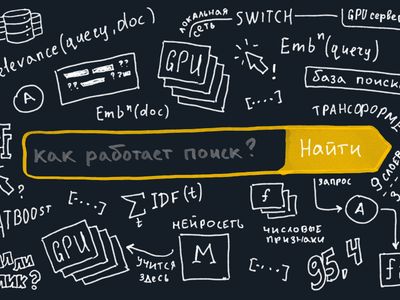 GPU серве
ЛОКАЛЬНАЯ
СЕТЬ
SWITCH
relevance(query, doc)
Embⁿ(query)
GPU
база поиск
??
??
A
Embⁿ(doc)
[....]
ТРАНСФОРМЕ
как работает поиск?
Найти
f
ЗАПРОС
9 СЛОЕВ
ATBOOST
[...]
∑ IDF(t)
t
f
A
НЕЙРОСЕТЬ
ЧИСЛОВЫЕ
ПРИЗНАКИ
ЛИ
ИК?
GPU
УЧИТСЯ
ЗДЕСЬ
M
[...]
95,4
f